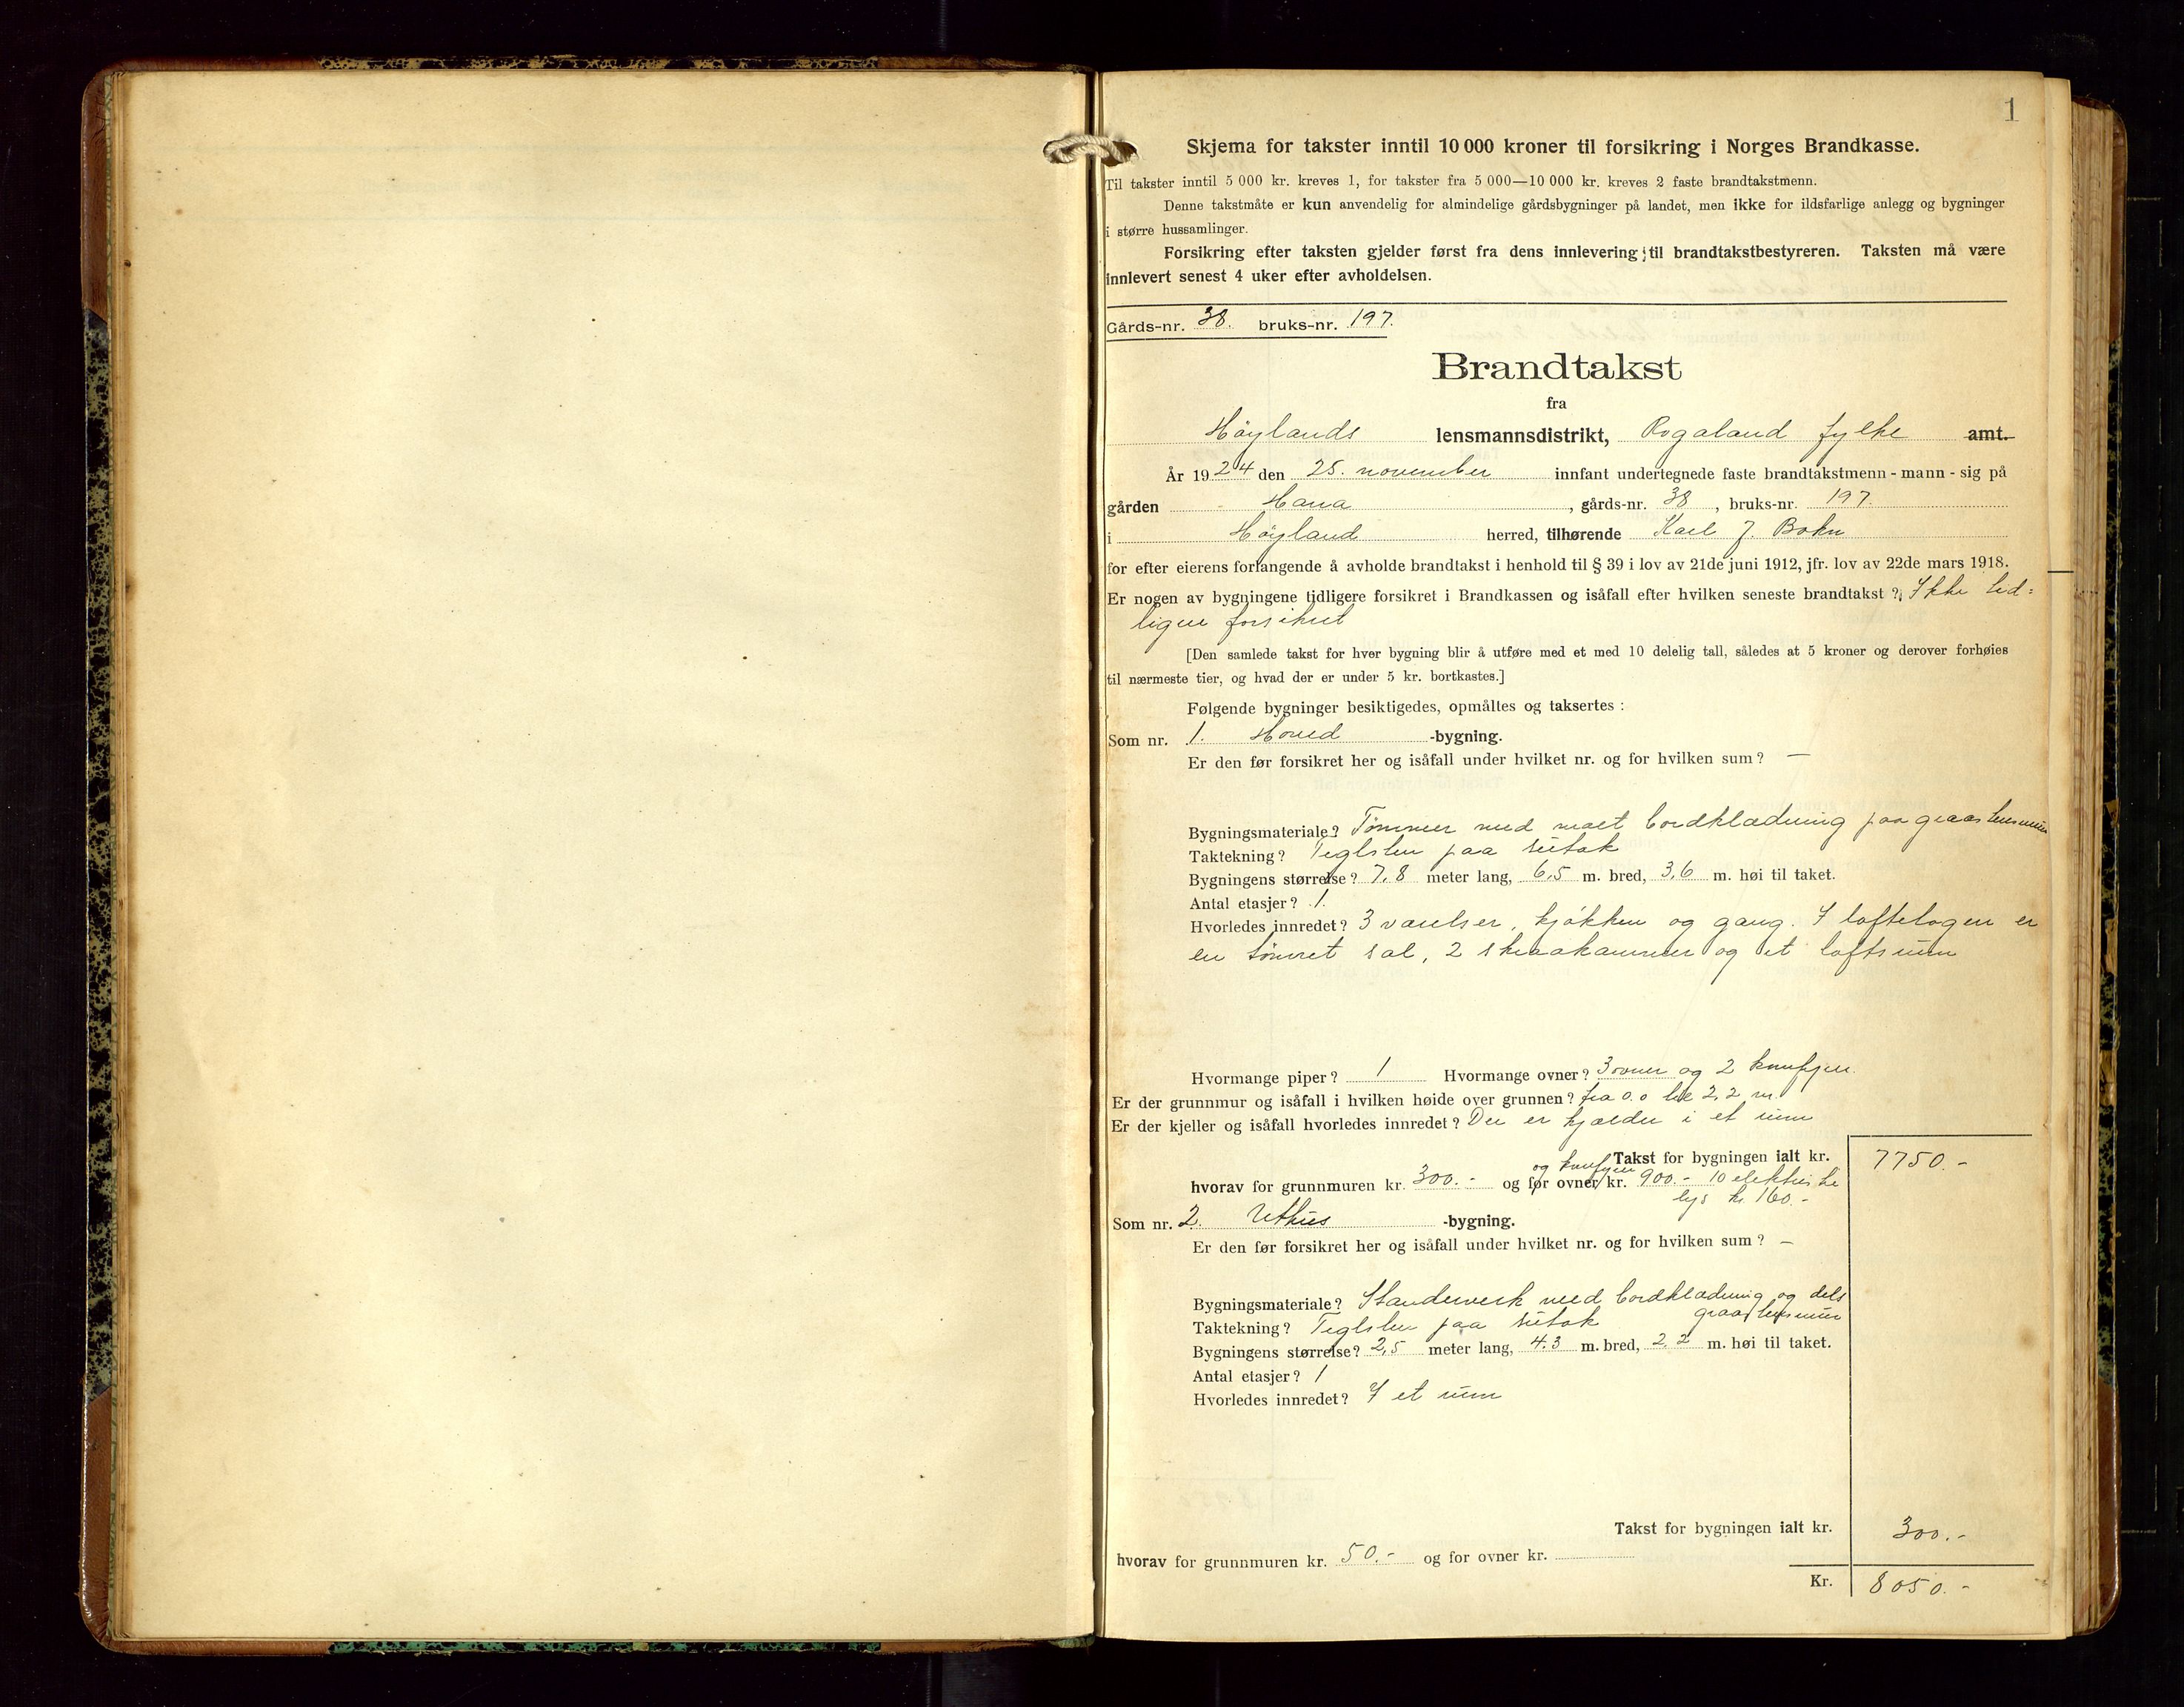 1
Skjema for takster inntil 10 000 kroner til forsikring i Norges Brandkasse.
Til takster inntil 5 000 kr. kreves 1, for takster fra 5 000—10 000 kr. kreves 2 faste brandtakstmenn.
Denne takstmåte er kun anvendelig for almindelige gårdsbygninger på landet, men ikke for ildsfarlige anlegg og bygninger
i større hussamlinger.
Forsikring efter taksten gjelder først fra dens innlevering til brandtakstbestyreren. Taksten må være
innlevert senest 4 uker efter avholdelsen.
Gårds-nr. 38. bruks-nr. 197.
Brandtakst
fra
Høylands lensmannsdistrikt, Rogaland fylke amt.
År 1924 den 25. november innfant undertegnede faste brandtakstmenn - mann - sig på
gården Hana, gårds-nr. 38, bruks-nr. 197.
i Høyland herred, tilhørende Karl J. Bokn
for efter eierens forlangende å avholde brandtakst i henhold til § 39 i lov av 21de juni 1912, jfr. lov av 22de mars 1918.
Er nogen av bygningene tidligere forsikret i Brandkassen og isåfall efter hvilken seneste brandtakst? Ikke tid=
ligere forsikret
[Den samlede takst for hver bygning blir å utføre med et med 10 delelig tall, således at 5 kroner og derover forhøies
til nærmeste tier, og hvad der er under 5 kr. bortkastes.]
Følgende bygninger besiktigedes, opmåltes og taksertes:
Som nr. 1. Hoved -bygning.
Er den før forsikret her og isåfall under hvilket nr. og for hvilken sum? —
Bygningsmateriale? Tømmer med malt bordklædning paa graastensmur
Taktekning? Teglsten paa sutak
Bygningens størrelse? 7,8 meter lang, 6,5 m. bred, 3,6 m. høi til taket.
Antal etasjer? 1.
Hvorledes innredet? 3 værelser, kjøkken og gang. I loftetagen er
en tømret sal, 2 skraakammer og et loftsrum
Hvormange piper? 1 Hvormange ovner? 3 ovner og 2 komfyrer.
Er der grunnmur og isåfall i hvilken høide over grunnen? fra 0.0 til 2,2 m.
Er der kjeller og isåfall hvorledes innredet? Der er kjælder i et rum
Takst for bygningen ialt kr. 7750.-
og komfyrer
hvorav for grunnmuren kr. 300.- og for ovner kr. 900.- 10 elektriske
lys kr. 160.-
Som nr. 2. Uthus -bygning.
Er den før forsikret her og isåfall under hvilket nr. og for hvilken sum? —
Bygningsmateriale? Standerverk med bordklædning og dels
graastensmur
Taktekning? Teglsten paa sutak
Bygningens størrelse? 2,5 meter lang, 4.3 m. bred, 2.2 m. høi til taket.
Antal etasjer? 1
Hvorledes innredet? I et rum
Takst for bygningen ialt kr. 300.-
hvorav for grunnmuren kr. 50.- og for ovner kr.
Kr. 8050.-